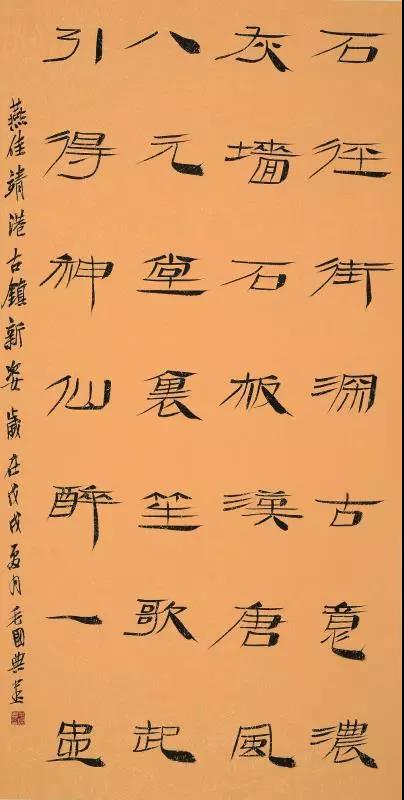 石径街深古意濃
灰墻石板漢唐風
八元堂裏笙歌起
引得神仙醉一盅
燕佳靖港古鎮新姿歲在戊戌夏月毛國典書